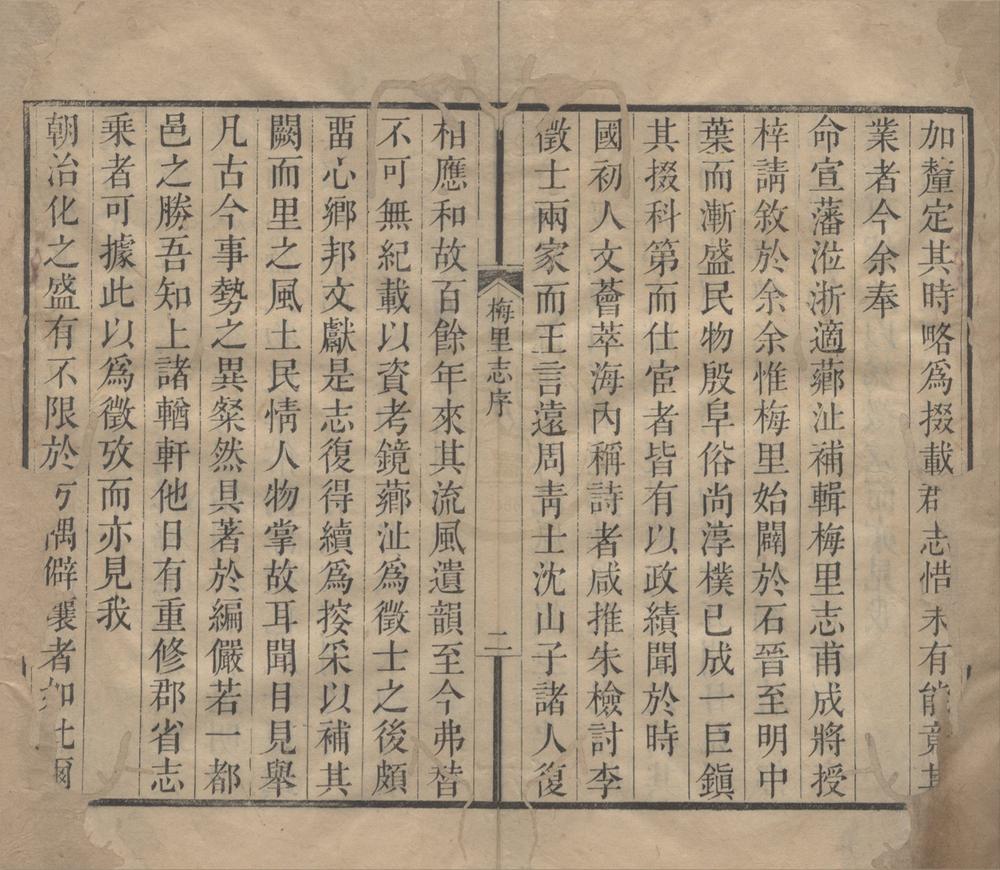 加釐定其時略爲掇載郡志惜未有能竟其
業者今余奉
命宣藩涖浙適薌沚補輯梅里志甫成將授
梓請敘於余余惟梅里始闢於石晉至明中
葉而漸盛民物殷阜俗尚淳樸已成一巨鎭
其掇科第而仕宦者皆有以政績聞於時
國初人文薈萃海內稱詩者咸推朱檢討李
徵士兩家而王言遠周靑士沈山子諸人復
梅里志序
二
相應和故百餘年來其流風遺韻至今弗替
不可無紀載以資考鏡薌沚爲徵士之後頗
畱心鄉邦文獻是志復得續爲搜采以補其
闕而里之風土民情人物掌故耳聞目見舉
凡古今事勢之異粲然具著於編儼若一都
邑之勝吾知上諸輶軒他日有重修郡省志
乘者可據此以爲徵攷而亦見我
朝治化之盛有不限於方隅僻壤者如此爾